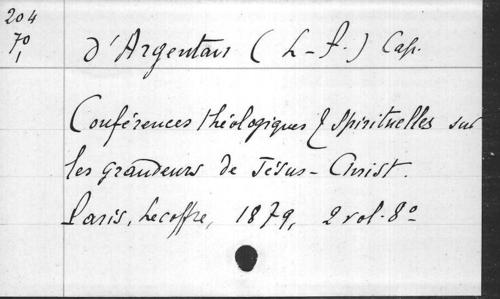 204
70
1
d'Argentan (L-f.) Cap.
Conférences théologiques & spirituelles sur
les grandeurs de Jésus-Christ.
Paris, Lecoffre, 1879, 2 vol. 8º